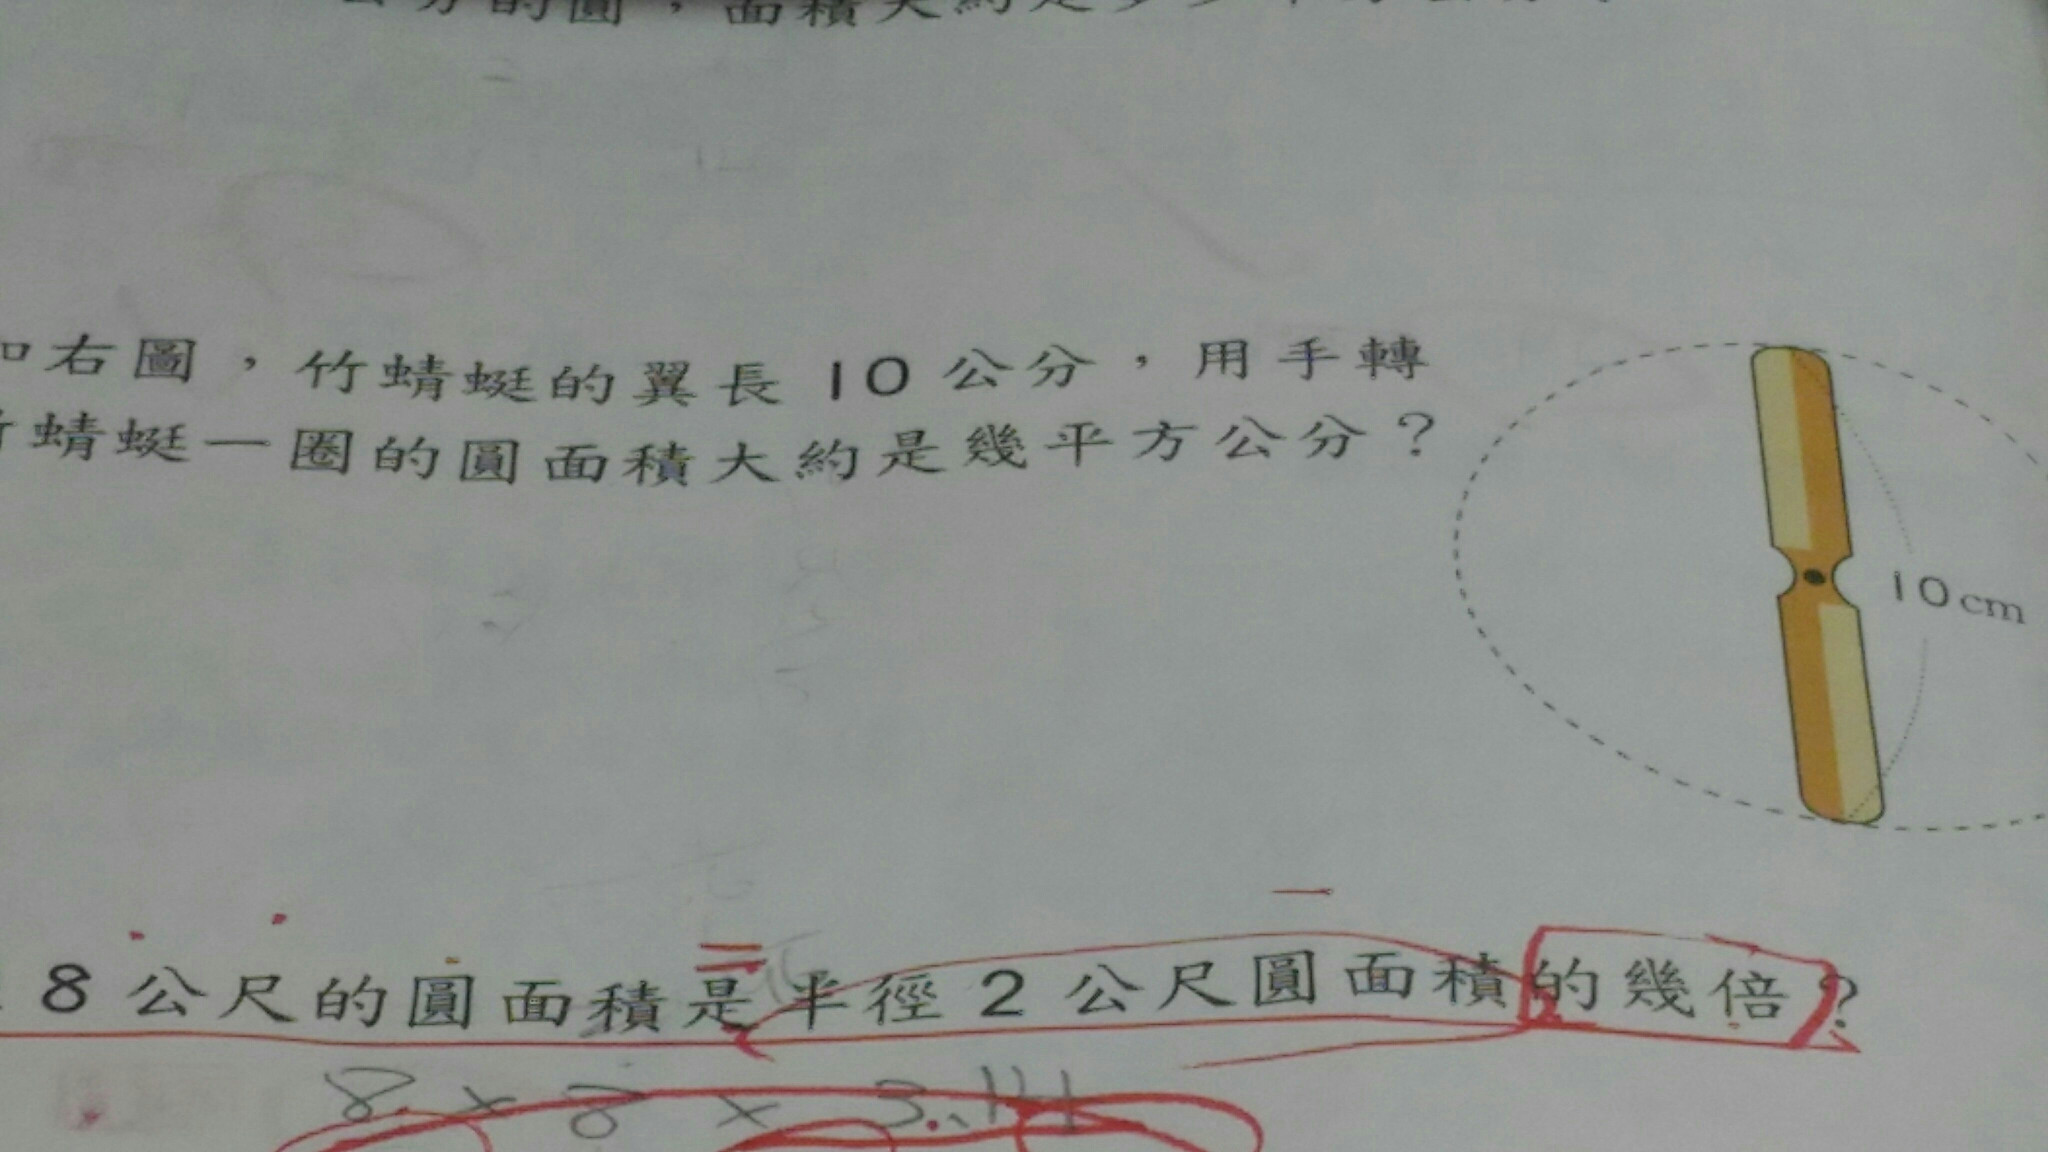 公分的圓，面積大約是多少平方公分？
如右圖，竹蜻蜓的翼長10公分，用手轉
竹蜻蜓一圈的圓面積大約是幾平方公分？
10cm
8公尺的圓面積是半徑2公尺圓面積的幾倍？
8×8×3.14